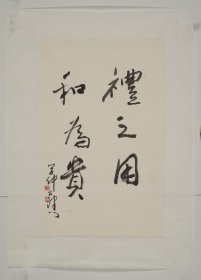 禮之用
和為貴